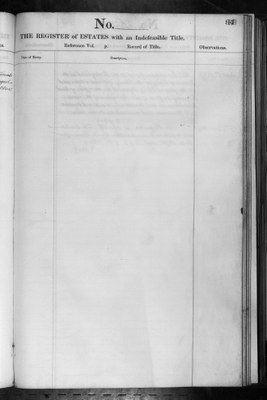 No.
THE REGISTER of ESTATES with an Indefeasible Title.
Reference Vol. p. Record of Title. Observations.
Date of Entry. Description.